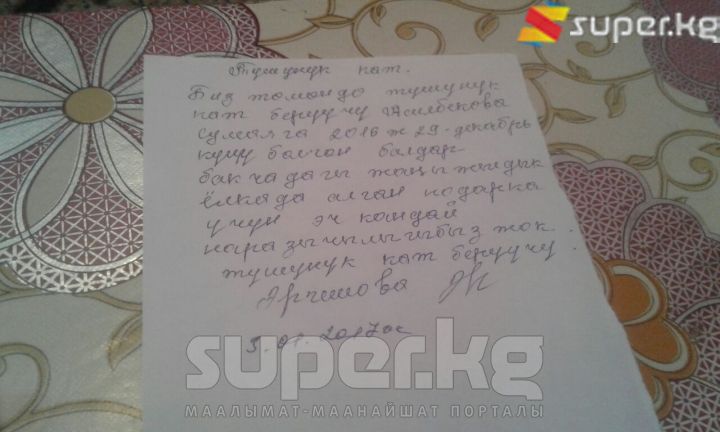 super.kg
Түшүнүк кат.
Биз төмөндө түшүнүк
кат берүүчү Асылбекова
га 2016 ж 29-декабрь
күнү болгон балдар
бакчадагы жаңы жылдык
ёлкада алган подарка
үчүн эч кандай
нааразычылыгыбыз жок.
түшүнүк кат берүүчү.
5.01.2017ж
super.kg
МААЛЫМАТ-МААНАЙШАТ ПОРТАЛЫ